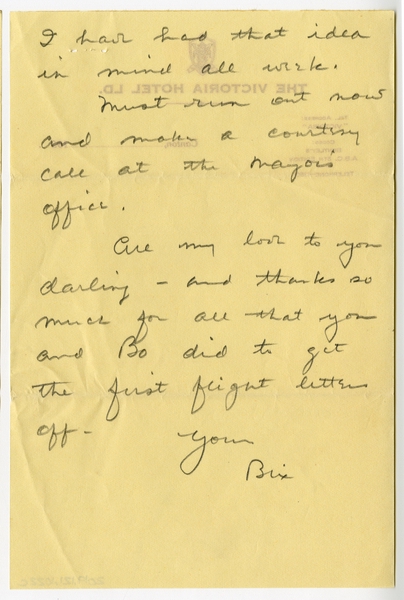 I have had that idea
in mind all week.
Must run out now
and make a courtesy
call at the Mayors
office.
All my love to you
darling - and thanks so
much for all that you
and Bo did to get
the first flight letters
off -
Your
Bix
THE VICTORIA HOTEL LD.